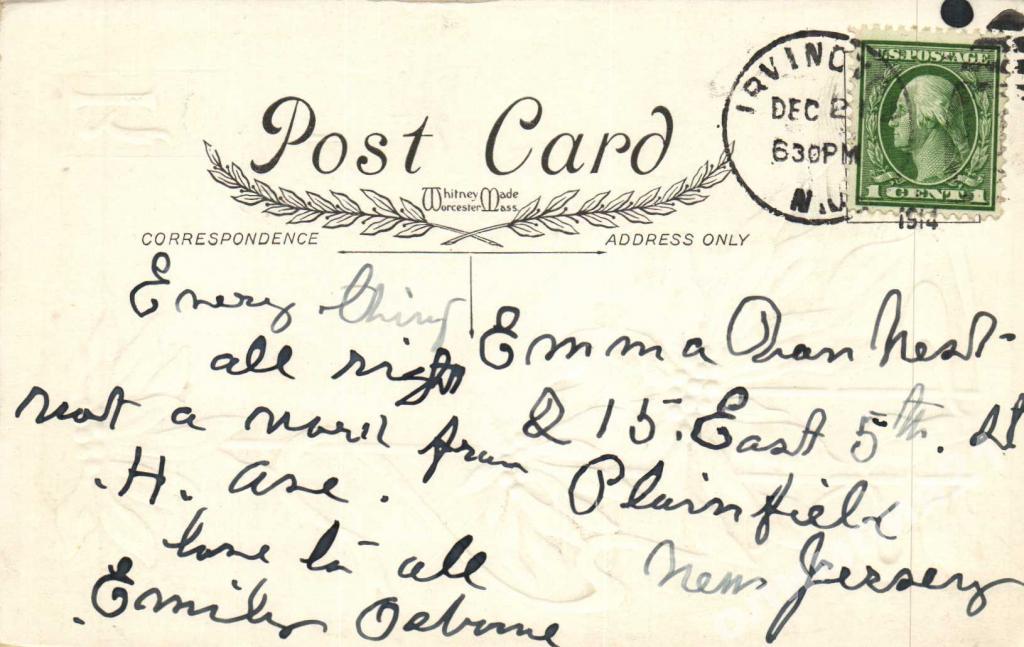 Post Card
Whitney Made
Worcester Mass.
CORRESPONDENCE
ADDRESS ONLY
IRVING
DEC 2
630PM
N.J
1914
U.S. POSTAGE
1 CENT 1
Every thing
all right
not a word from
H. Ave.
love to all
Emily Osborne
Emma
215. East 5th. St
Plainfield
New Jersey